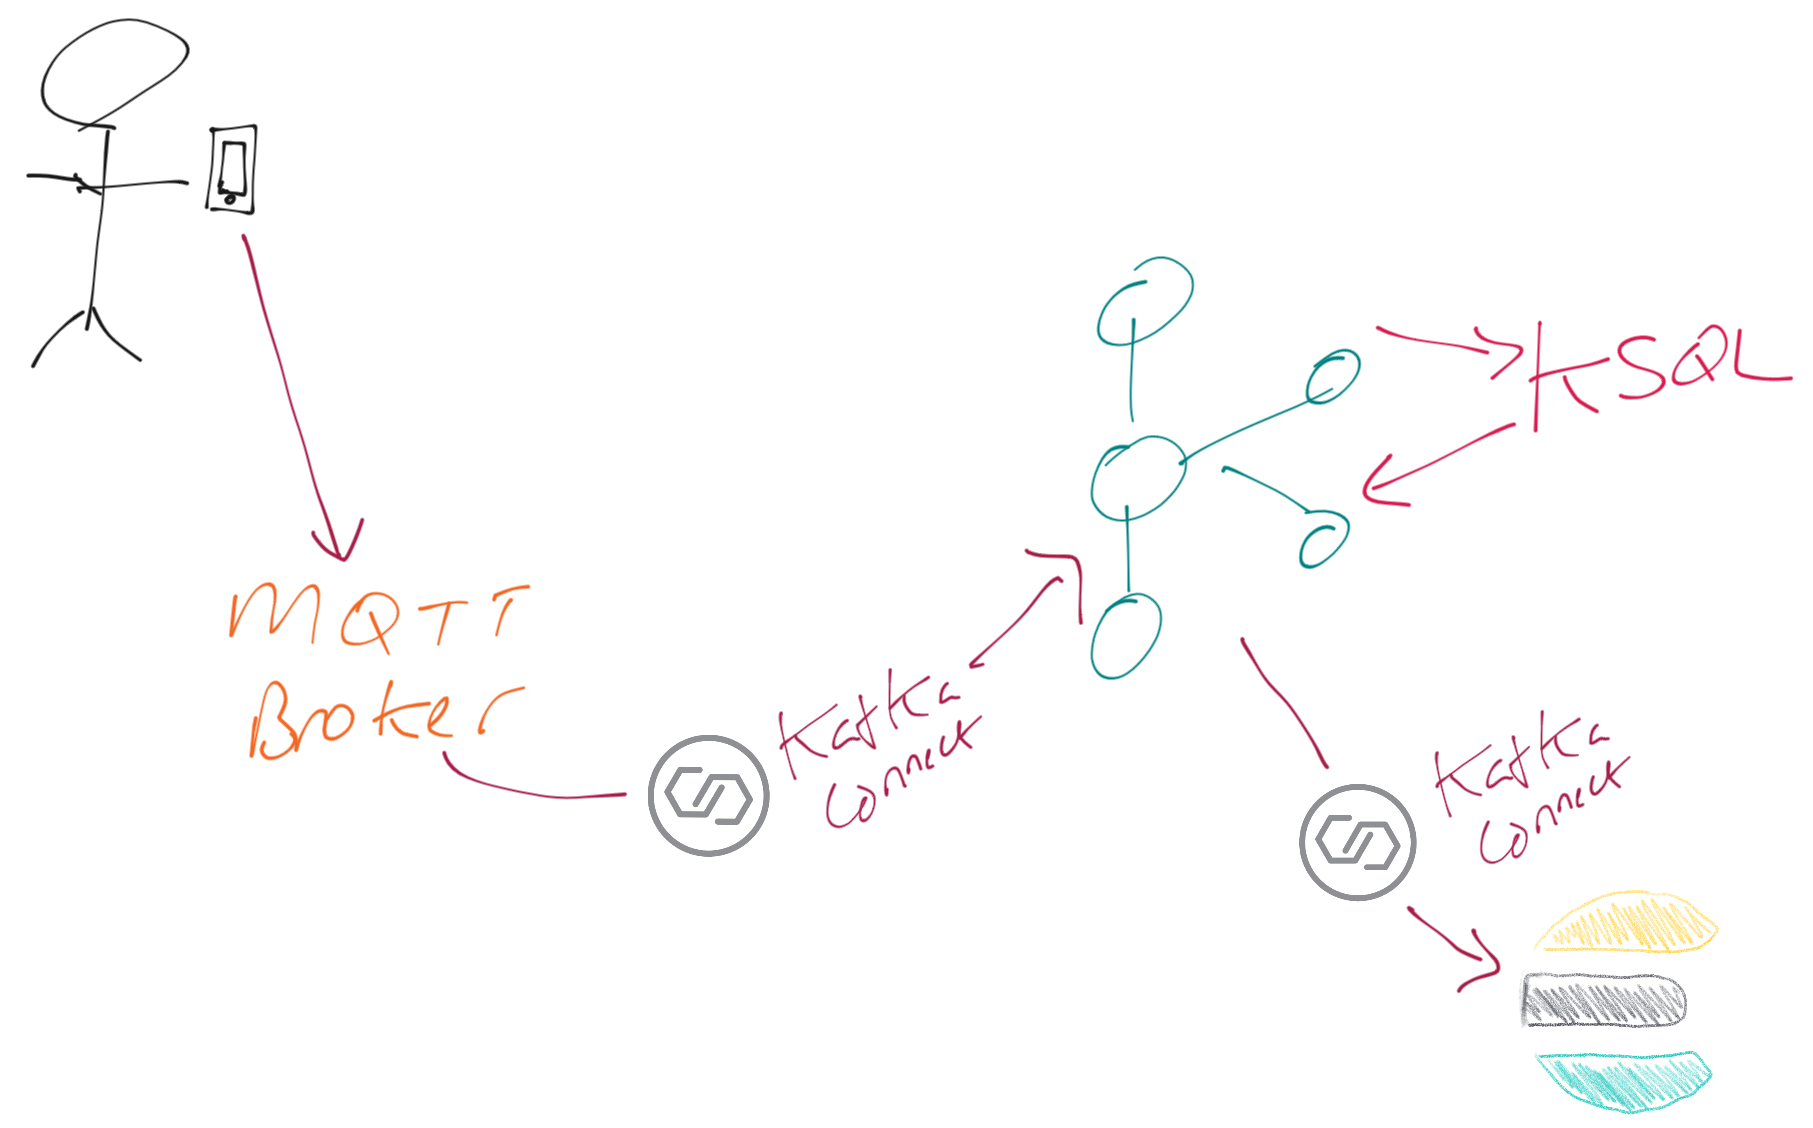 MQTT
Broker
Kafka
Connect
KSQL
Kafka
Connect